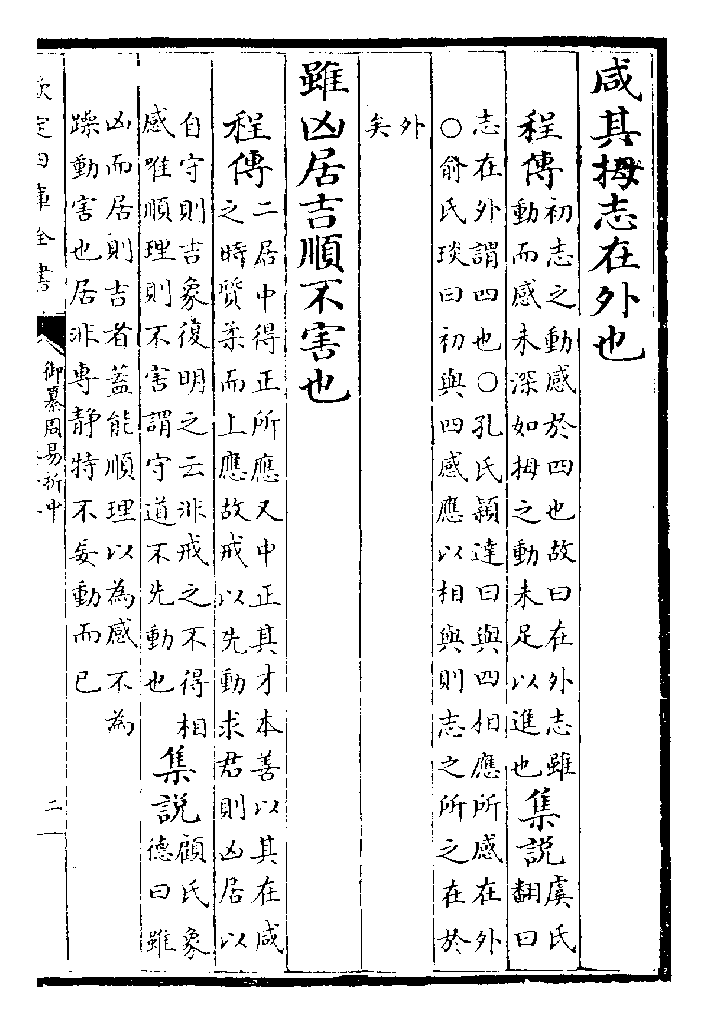 咸其拇志在外也
程傳初志之動感於四也故曰在外志雖
動而感未深如拇之動未足以進也集説虞氏
翻曰
志在外謂四也○孔氏穎達曰與四相應所感在外
○俞氏琰曰初與四感應以相與則志之所之在於
外
矣
雖凶居吉順不害也
程傳二居中得正所應又中正其才本善以其在咸
之時質柔而上應故戒以先動求君則凶居以
自守則吉象復明之云非戒之不得相
感唯順理則不害謂守道不先動也集説顧氏象
德曰雖
凶而居則吉者蓋能順理以為感不為
躁動害也居非專靜特不妄動而已
欽定四庫全書
御纂周易折中
二